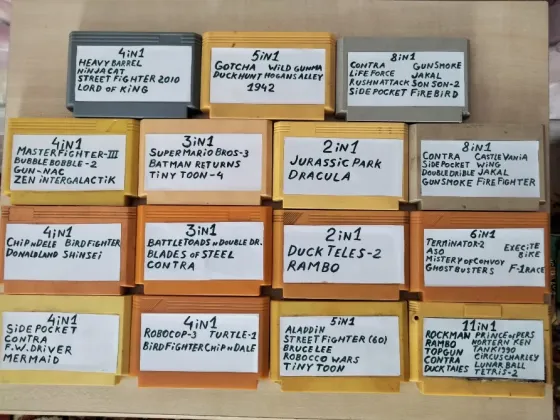 4in1
HEAVY BARREL
NINJA CAT
STREET FIGHTER 2010
LORD OF KING
5in1
GOTCHA WILD GUNMA
DUCKHUNT HOGANS ALLEY
1942
8in1
CONTRA GUNSMOKE
LIFEFORCE JAKAL
RUSHNATTACK SON SON-2
SIDE POCKET FIREBIRD
4in1
MASTERFIGHTER-III
BUBBLE BOBBLE-2
GUN-NAC
ZEN INTERGALACTIK
3in1
SUPER MARIO BROS-3
BATMAN RETURNS
TINY TOON-4
2in1
JURASSIC PARK
DRACULA
8in1
CONTRA CASTLEVANIA
SIDEPOCKET WING
DOUBLEDRIBLE JAKAL
GUNSMOKE FIREFIGHTER
4in1
CHIPNDELE BIRDFIGHTER
DONALDLAND SHINSEI
3in1
BATTLETOADS N DOUBLE DR.
BLADES OF STEEL
CONTRA
2in1
DUCK TELES-2
RAMBO
6in1
TERMINATOR-2 EXECITE
ASO BIKE
MISTERY OF CONVOY
GHOSTBUSTERS F-1RACE
4in1
SIDE POCKET
CONTRA
F.W.DRIVER
MERMAID
4in1
ROBOCOP-3 TURTLE-1
BIRDFIGHTER CHIP N DALE
5in1
ALADDIN
STREET FIGHTER (60)
BRUCE LEE
ROBOCCO WARS
TINY TOON
11in1
ROCKMAN PRINCE N PERS
RAMBO NORTERN KEN
TOPGUN TANK1990
CONTRA CIRCUS CHARLEY
DUCK TALES LUNAR BALL
TETRIS-2